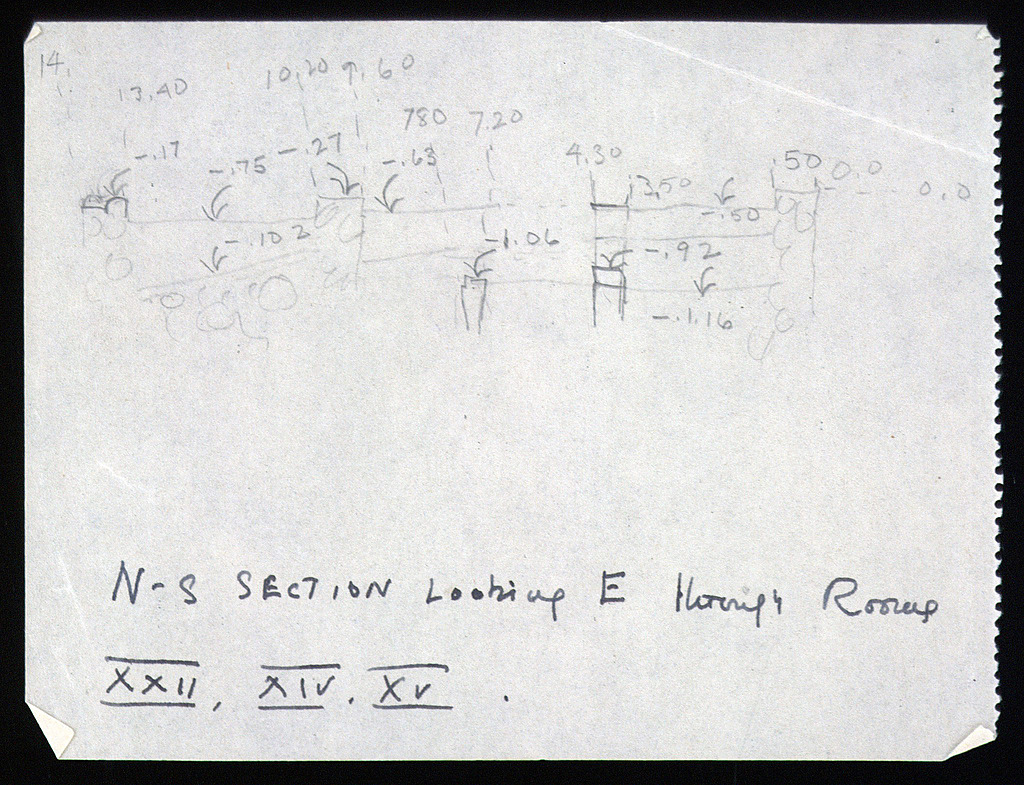 14.
13.40
10.20 9.60
780 7.20
4.30
3.50
.50 0.0
0.0
-.17
-.75
-.27
-.63
-.50
-.102
-1.06
-.92
-1.16
N-S SECTION Looking E through Rooms
XXII, XIV, XV.